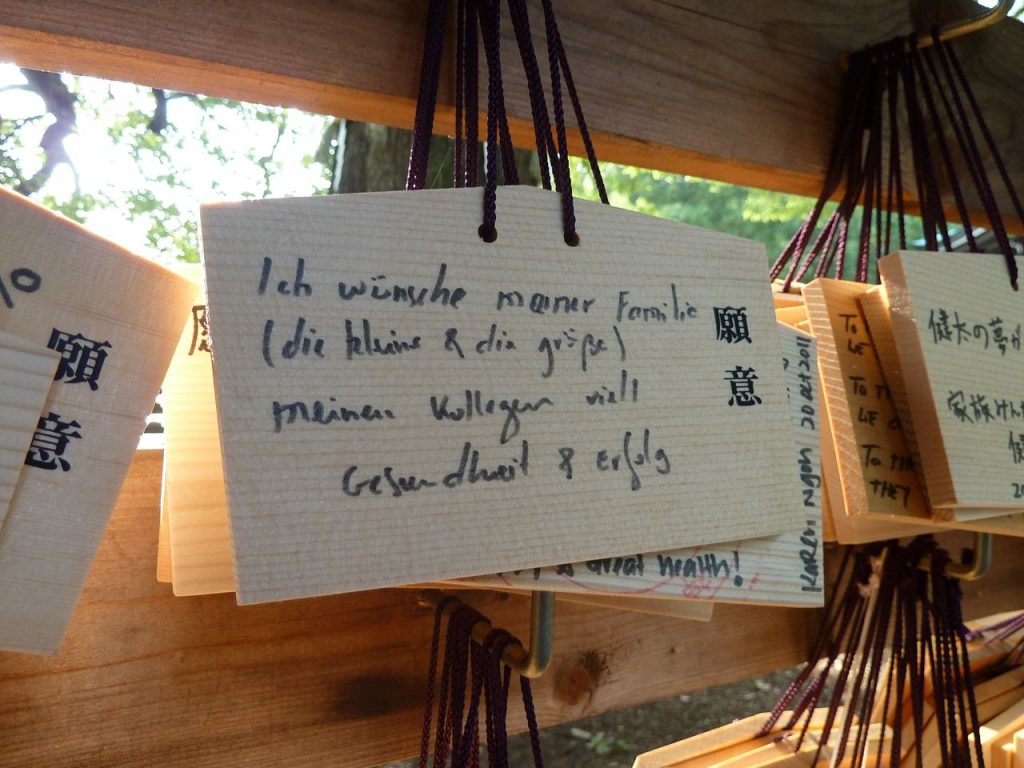 Ich wünsche meiner Familie
(die kleine & die große)
meinen Kollegen viel
Gesundheit & Erfolg
願意
願意
great health!
Karen Ngan 20 Oct 2011
To
To
To THE
THEY
健太の夢が
家族けん